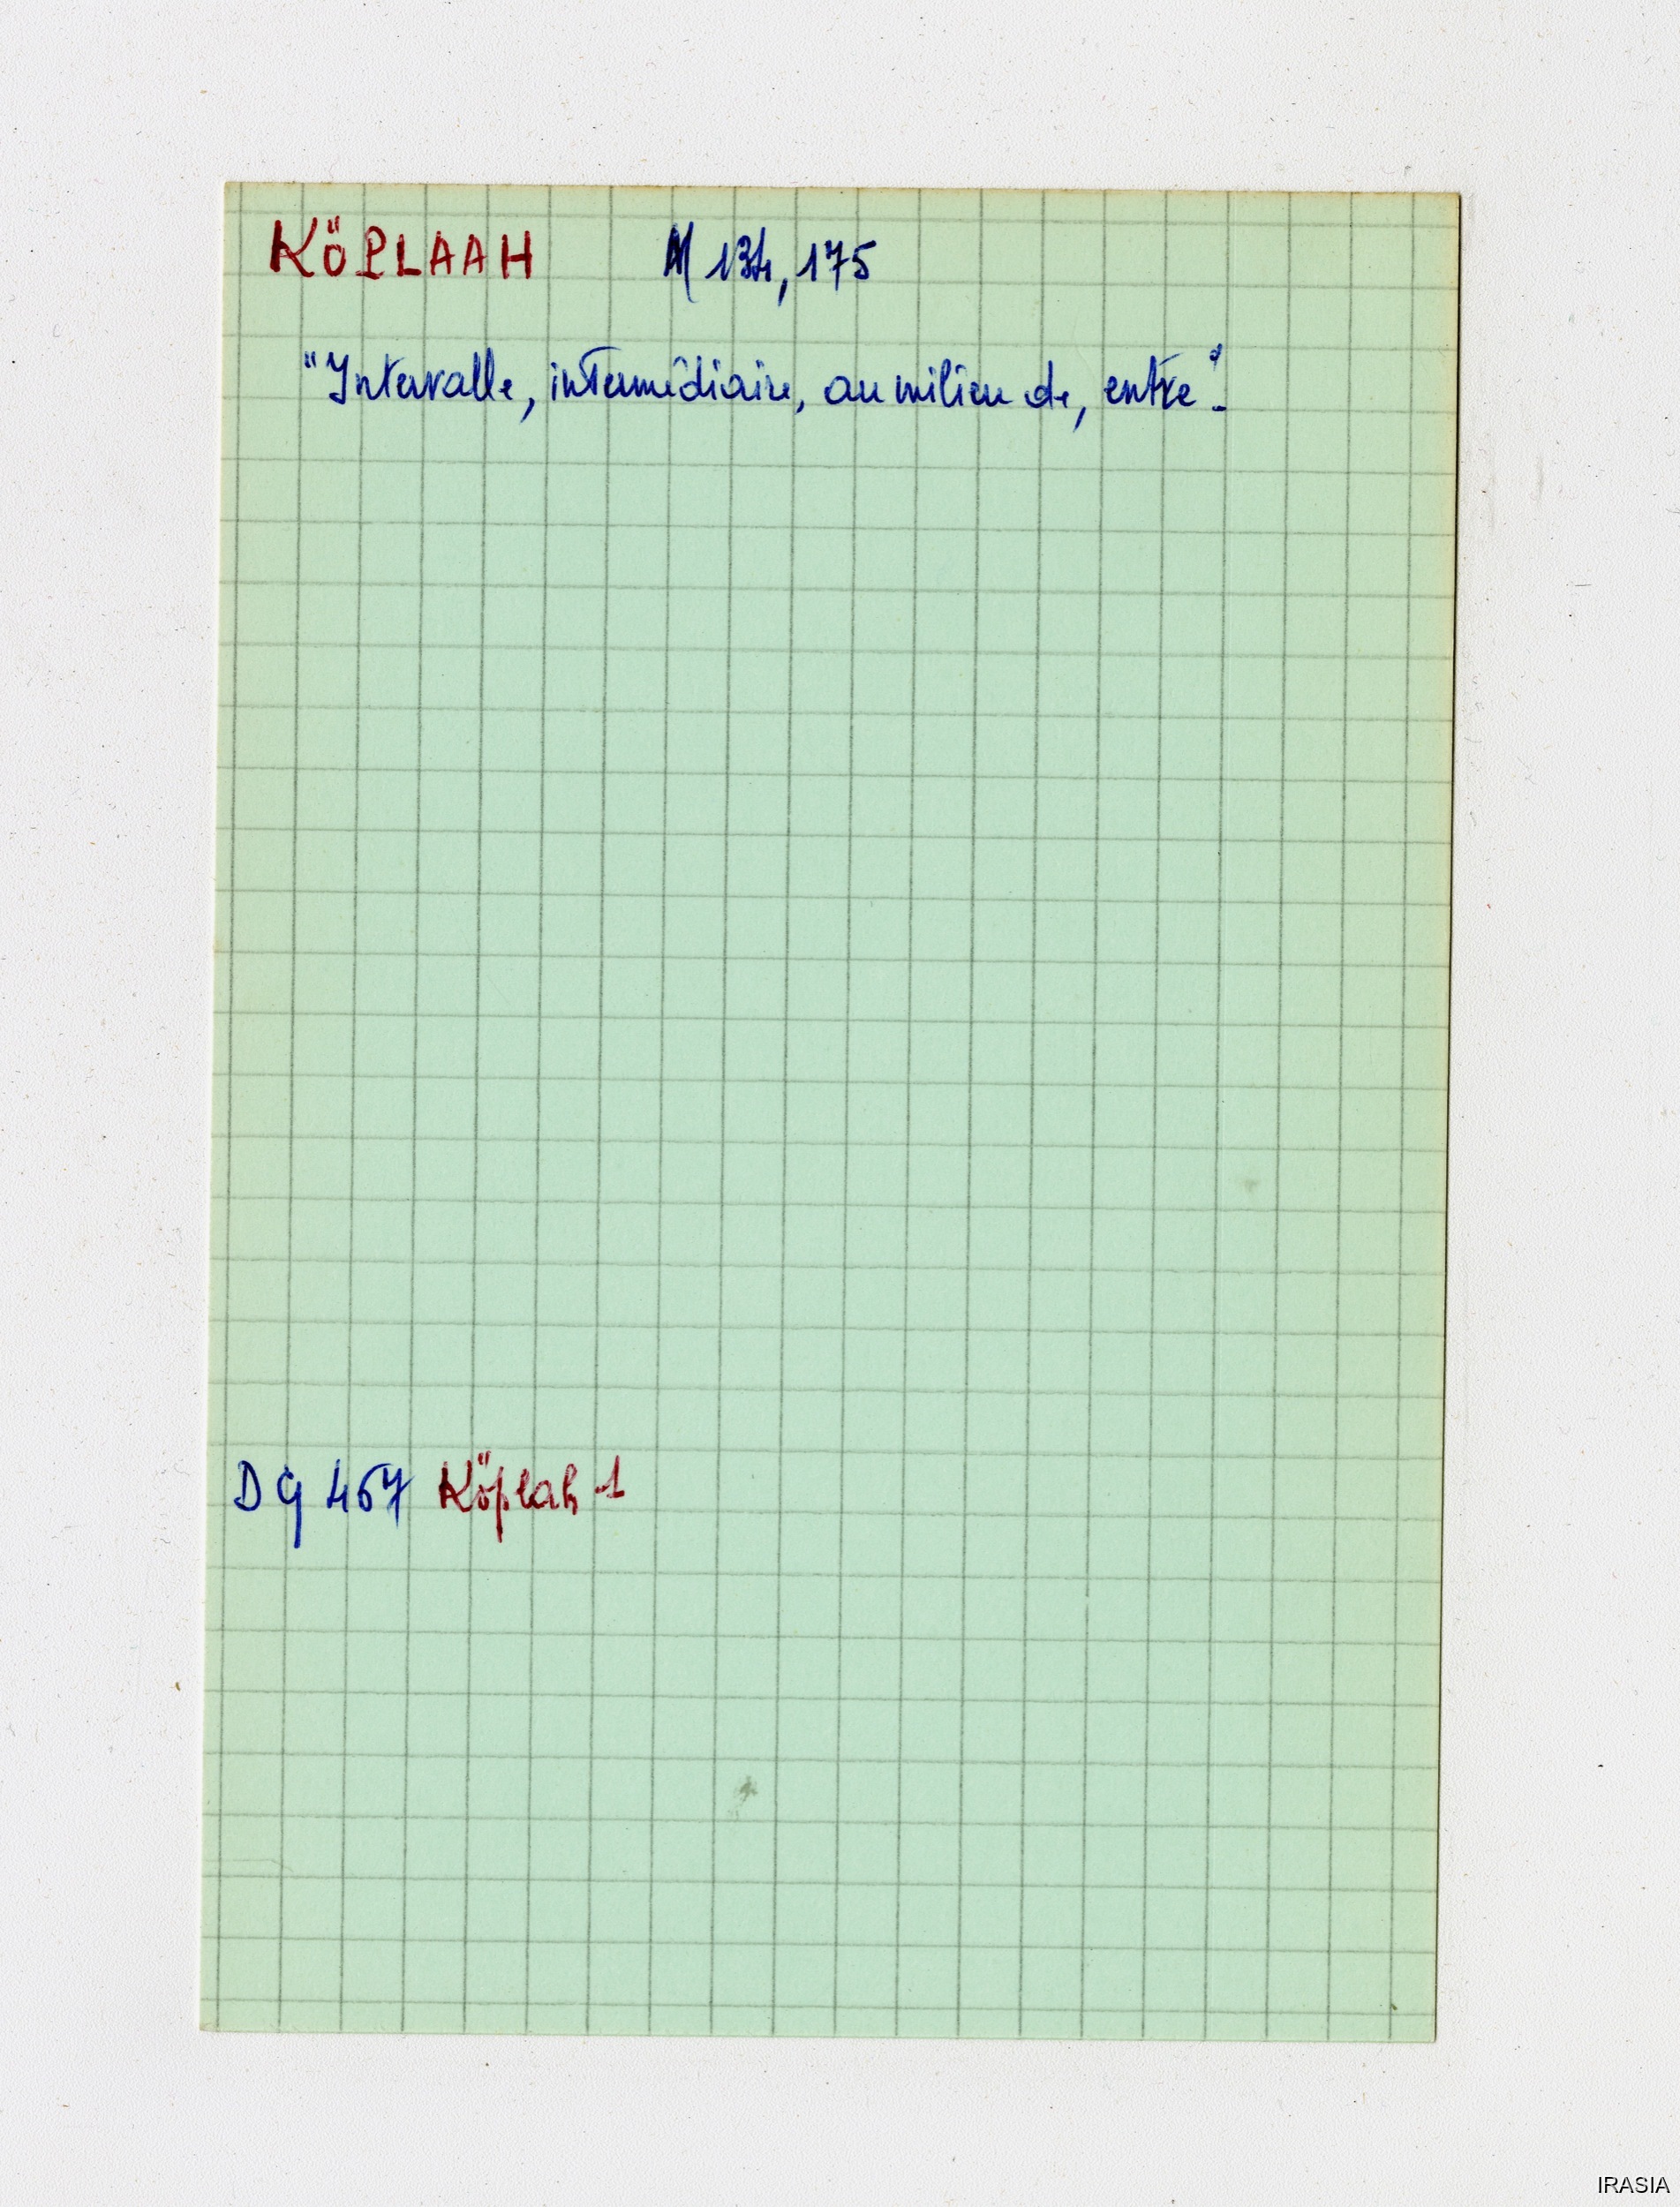 KÖPLAAH M 134, 175
"Intervalle, intermédiaire, au milieu de, entre".
DG 467 Köplah 1
IRASIA